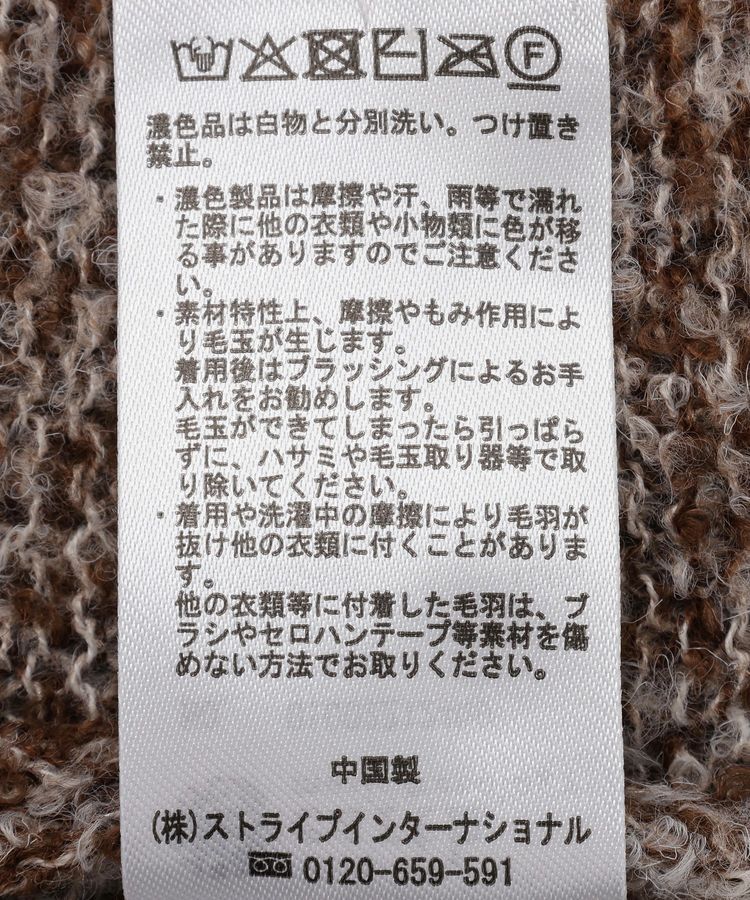 F
濃色品は白物と分別洗い。つけ置き
禁止。
・濃色製品は摩擦や汗、雨等で濡れ
た際に他の衣類や小物類に色が移
る事がありますのでご注意くださ
い。
・素材特性上、摩擦やもみ作用によ
り毛玉が生じます。
着用後はブラッシングによるお手
入れをお勧めします。
毛玉ができてしまったら引っぱら
ずに、ハサミや毛玉取り器等で取
り除いてください。
・着用や洗濯中の摩擦により毛羽が
抜け他の衣類に付くことがありま
す。
他の衣類等に付着した毛羽は、ブ
ラシやセロハンテープ等素材を傷
めない方法でお取りください。
中国製
(株)ストライプインターナショナル
0120-659-591